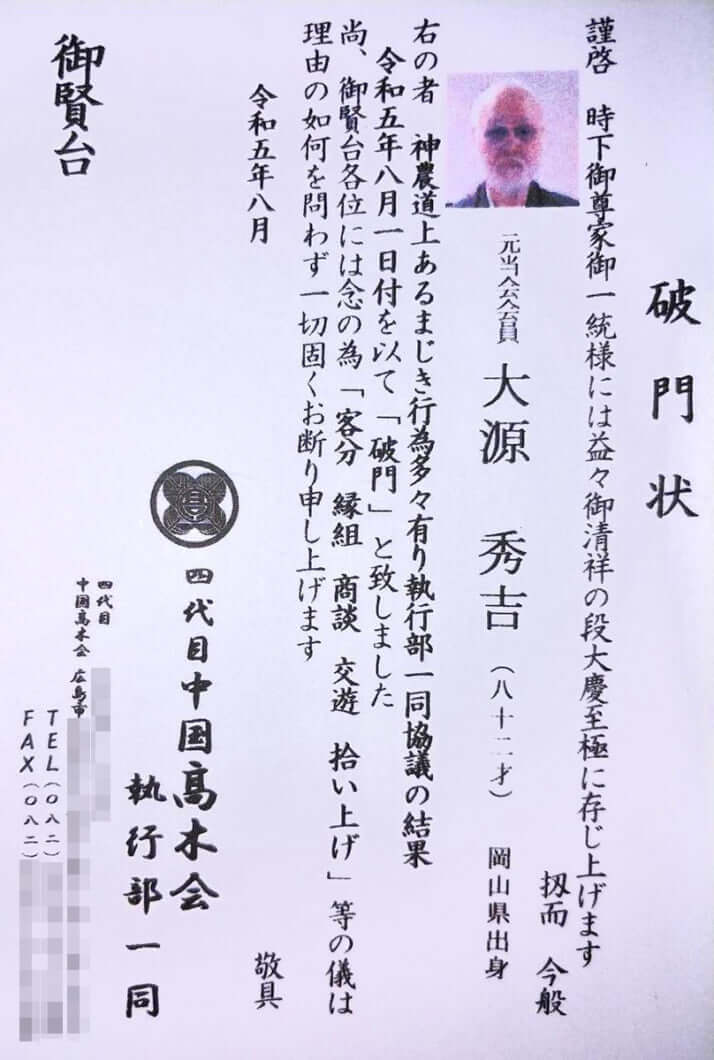 破門状
謹啓 時下御尊家御一統様には益々御清祥の段大慶至極に存じ上げます
扨而 今般
元当会会員 大源 秀吉 (八十二才) 岡山県出身
右の者 神農道上あるまじき行為多々有り執行部一同協議の結果
令和五年八月一日付を以て「破門」と致しました
尚、御賢台各位には念の為「客分 縁組 商談 交遊 拾い上げ」等の儀は
理由の如何を問わず一切固くお断り申し上げます
敬具
令和五年八月
四代目中国高木会
執行部一同
御賢台
四代目
中国高木会 広島市
TEL(〇八二)
FAX(〇八二)